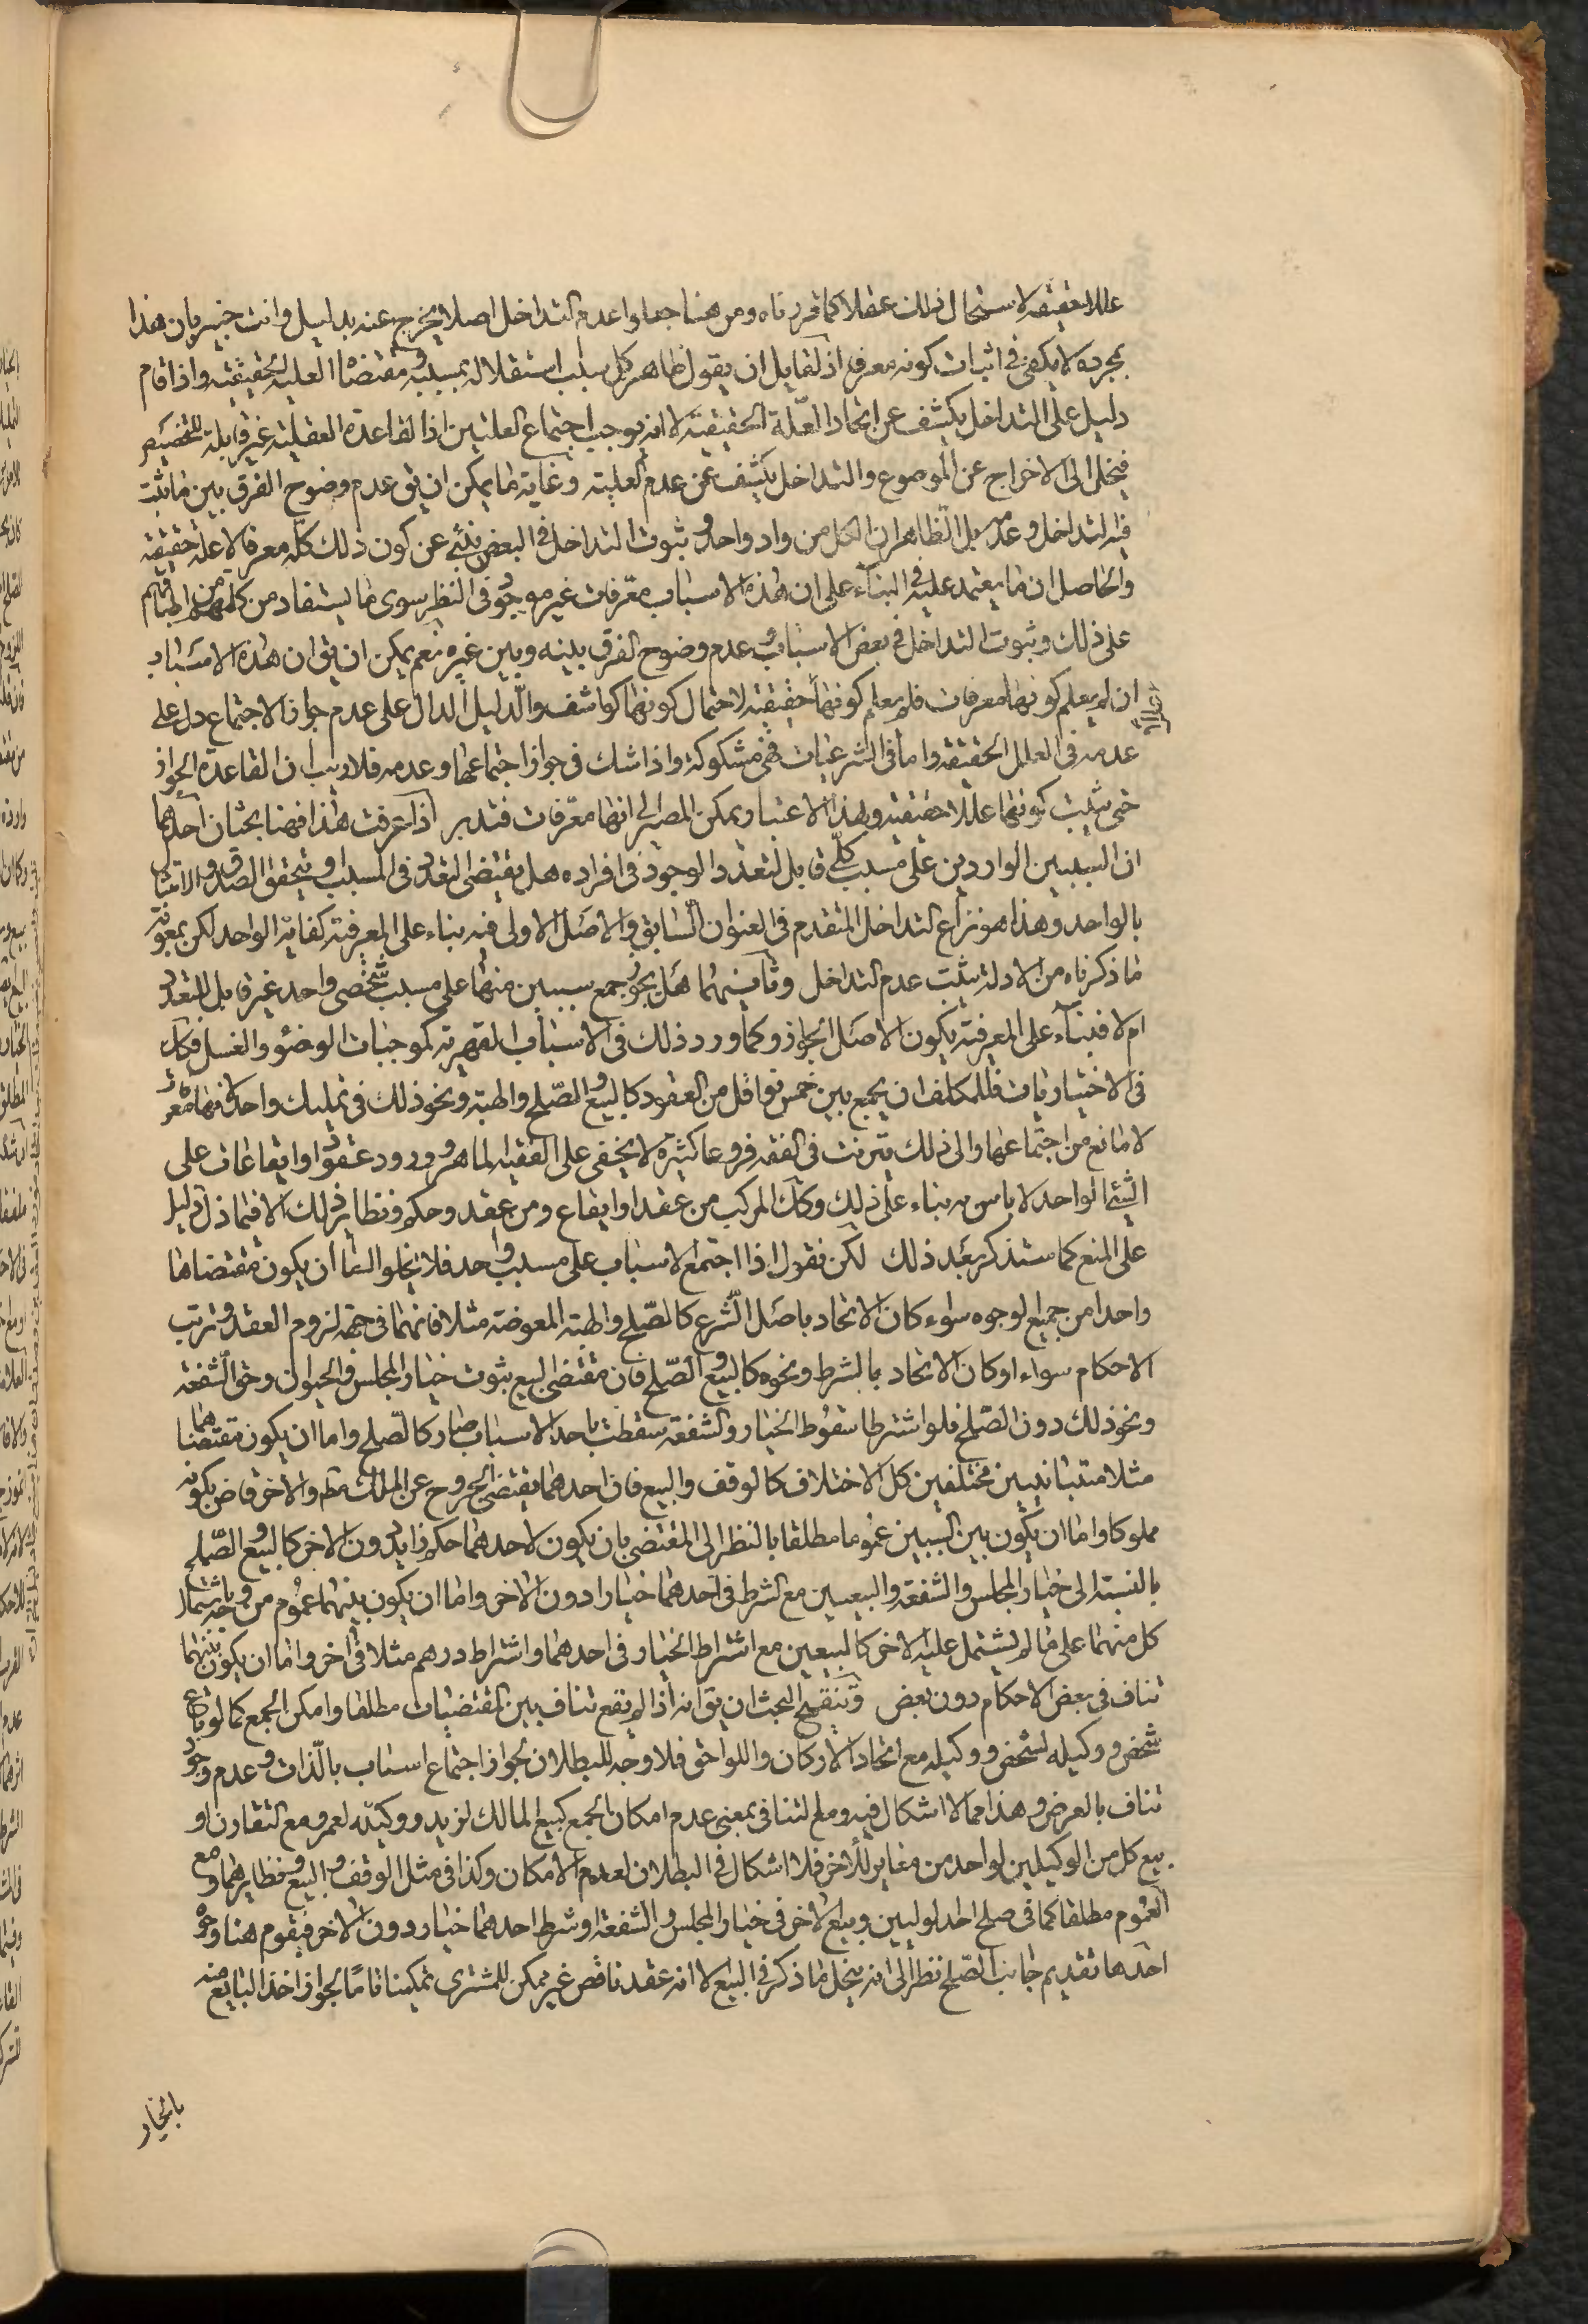 عللا حقيقة لاستحال ذلك عقلا كما قررناه ومن هنا جعلوا عدم التداخل اصلا يخرج عنه بدليل وانت خبير بان هذا
بمجرده لا يكفى في اثبات كونه معرفا اذ لقايل ان يقول ظاهر كل سبب استقلاله بمسببه ومقتضاها العلية الحقيقية واذا قام
دليل على التداخل يكشف عن اتحاد العلة الحقيقية لا انه يوجب اجتماع العلتين اذ القاعدة العقلية غير قابلة للتخصيص
فينحل الى الاخراج عن الموضوع والتداخل يكشف عن عدم العلية وغاية ما يمكن ان يق عدم وضوح الفرق بين ما يثبت
فيه التداخل وعدمه بل الظاهر ان الكل من واد واحد وثبوت التداخل في البعض ينبئ عن كون ذلك كله معرفا لا علة حقيقية
والحاصل ان ما يعتمد عليه في البناء على ان هذه الاسباب معرفات غير موجود في النظر سوى ما يستفاد من كلمهم من اطباقهم
على ذلك وثبوت التداخل في بعض الاسباب وعدم وضوح الفرق بينه وبين غيره نعم يمكن ان يق ان هذه الاسباب
ان لم يعلم كونها معرفات فلم يعلم كونها حقيقية لاحتمال كونها كواشف والدليل الدال على عدم جواز الاجتماع دل على
عدمه في العلل الحقيقة واما في الشرعيات فهى مشكوكة واذا شك في جواز اجتماعها وعدمه فلا ريب ان القاعدة الجواز
حتى يثبت كونها عللا حقيقية وبهذا الاعتبار يمكن المصير الى انها معرفات فتدبر اذا عرفت هذا فهنا بحثان احدهما
ان السببين الواردين على مسبب كلي قابل لتعدد الوجود في افراده هل يقتضى التعدد في المسبب او يتحقق الصدق والامتثال
بالواحد وهذا هو نزاع التداخل المتقدم في العنوان السابق والاصل الاولى فيه بناء على المعرفية كفاية الواحد لكن بمعونة
ما ذكرناه من الادلة يثبت عدم التداخل وثانيهما هل يجوز جمع سببين منها على مسبب شخصى واحد غير قابل للتعدد
ام لا فبناء على المعرفية يكون الاصل الجواز وكما ورد ذلك في الاسباب القهرية كموجبات الوضوء والغسل فكك
في الاختياريات فللمكلف ان يجمع بين خمس نواقل من العقود كالبيع والصلح والهبة ونحو ذلك في تمليك واحد فانها معرفات
لا مانع من اجتماعها والى ذلك يترتب في الفقه فروعا كثيرة لا يخفى على الفقيه الماهر وورود عقود او ايقاعات على
الشئ الواحد لا باس به بناء على ذلك وكك المركب من عقد او ايقاع ومن عقد وحكم ونظاير ذلك الا فيما دل دليل
على المنع كما ستذكر بعد ذلك لكن نقول اذا اجتمع الاسباب على مسبب واحد فلا يخلو اما ان يكون مقتضاها
واحدا من جميع الوجوه سواء كان الاتحاد باصل الشرع كالصلح والهبة المعوضة مثلا فانهما في جهة لزوم العقد وترتب
الاحكام سواء او كان الاتحاد بالشرط ونحوه كالبيع والصلح فان مقتضى البيع ثبوت خيار المجلس والحيوان وحق الشفعة
ونحو ذلك دون الصلح فلو اشترطا سقوط الخيار والشفعة سقطت باحد الاسباب صار كالصلح واما ان يكون مقتضاهما
مثلا متباينين مختلفين كل الاختلاف كالوقف والبيع فان احدهما يقتضى الخروج عن الملك مط والاخر قاض بكونه
مملوكا واما ان يكون بين السببين عموما مطلقا بالنظر الى المقتضى بان يكون لاحدهما حكم زايد دون الاخر كالبيع والصلح
بالنسبة الى خيار المجلس والشفعة والبيعين مع الشرط في احدهما خيارا دون الاخر واما ان يكون بينهما عموم من وجه باشتمال
كل منهما على ما لم يشتمل عليه الاخر كالبيعين مع اشتراط الخيار في احدهما واشتراط درهم مثلا في اخر واما ان يكون بينهما
تناف في بعض الاحكام دون بعض وتنقيح البحث ان يق انه اذا لم يقع تناف بين المقتضيات مطلقا وامكن الجمع كما لو باع
شخص ووكيله لشخص ووكيله مع اتحاد الاركان واللواحق فلا وجه للبطلان لجواز اجتماع اسباب بالذات وعدم وجود
تناف بالعرض وهذا مما لا اشكال فيه ومع التنافى بمعنى عدم امكان الجمع كبيع المالك لزيد ووكيله لعمرو مع التقارن او
بيع كل من الوكيلين لواحد من مغاير للاخر فلا اشكال في البطلان لعدم الامكان وكذا في مثل الوقف والبيع ونظايرهما ومع
العموم مطلقا كما في صلح احد لولیین وبيع الاخر في خيار المجلس والشفعة او شرط احدهما خيار دون الاخر فيقوم هنا وجوه
احدها تقديم جانب الصلح نظرا الى انه ينحل ما ذكر في البيع لا انه عقد ناقص غير ممكن للمشترى تمكينا تاما لجواز اخذ البايع منه
بالخيار